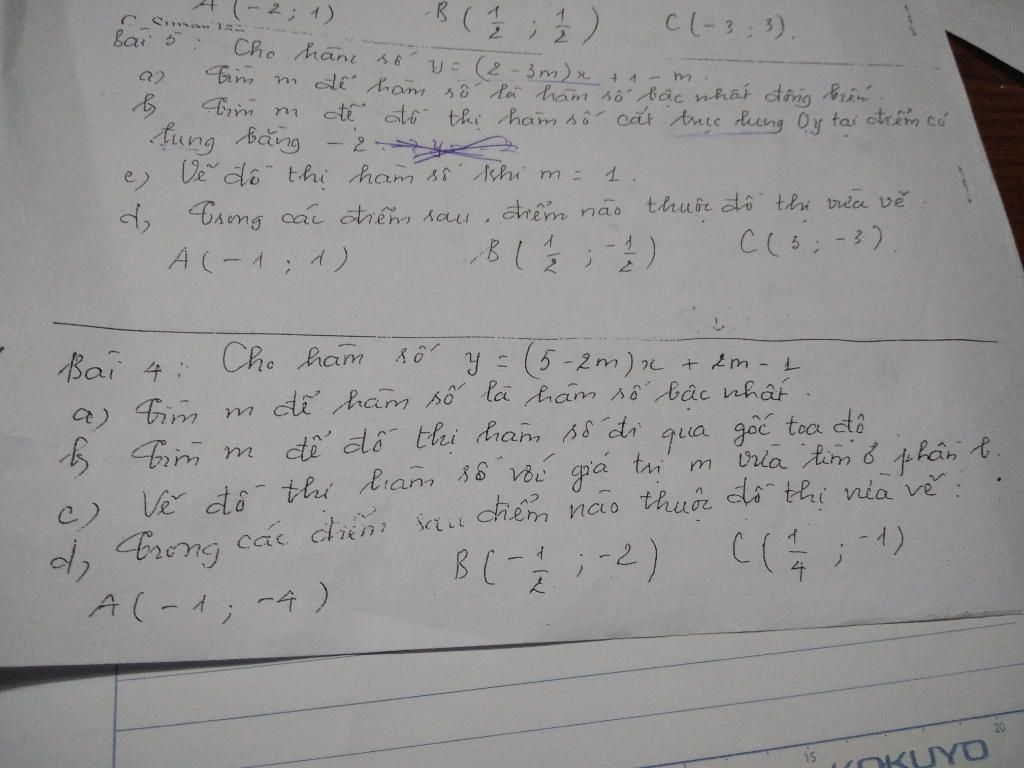 A(-2; 1) B(1/2; 1/2) C(-3; 3).
Bài 5: Cho hàm số y = (2-3m)x + 1-m.
a) Tìm m để hàm số là hàm số bậc nhất đồng biến.
b, Tìm m để đồ thị hàm số cắt trục tung Oy tại điểm có
tung bằng -2.
c, Vẽ đồ thị hàm số khi m = 1.
d, Trong các điểm sau, điểm nào thuộc đồ thị vừa vẽ.
A(-1; 1) B(1/2; -1/2) C(3; -3).
Bài 4: Cho hàm số y = (5-2m)x + 2m-1
a) Tìm m để hàm số là hàm số bậc nhất.
b, Tìm m để đồ thị hàm số đi qua gốc toạ độ
c) Vẽ đồ thị hàm số với giá trị m vừa tìm ở phần b.
d, Trong các điểm sau điểm nào thuộc đồ thị vừa vẽ:
A(-1; -4) B(-1/2; -2) C(1/4; -1)
15 20
KOKUYO